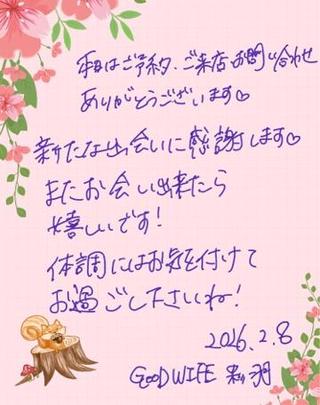 本日はご予約、ご来店、お問い合わせ
ありがとうございます♡
新たな出会いに感謝します♡
またお会い出来たら
嬉しいです!
体調にはお気を付けて
お過ごし下さいね!
2026.2.8
GOODWIFE